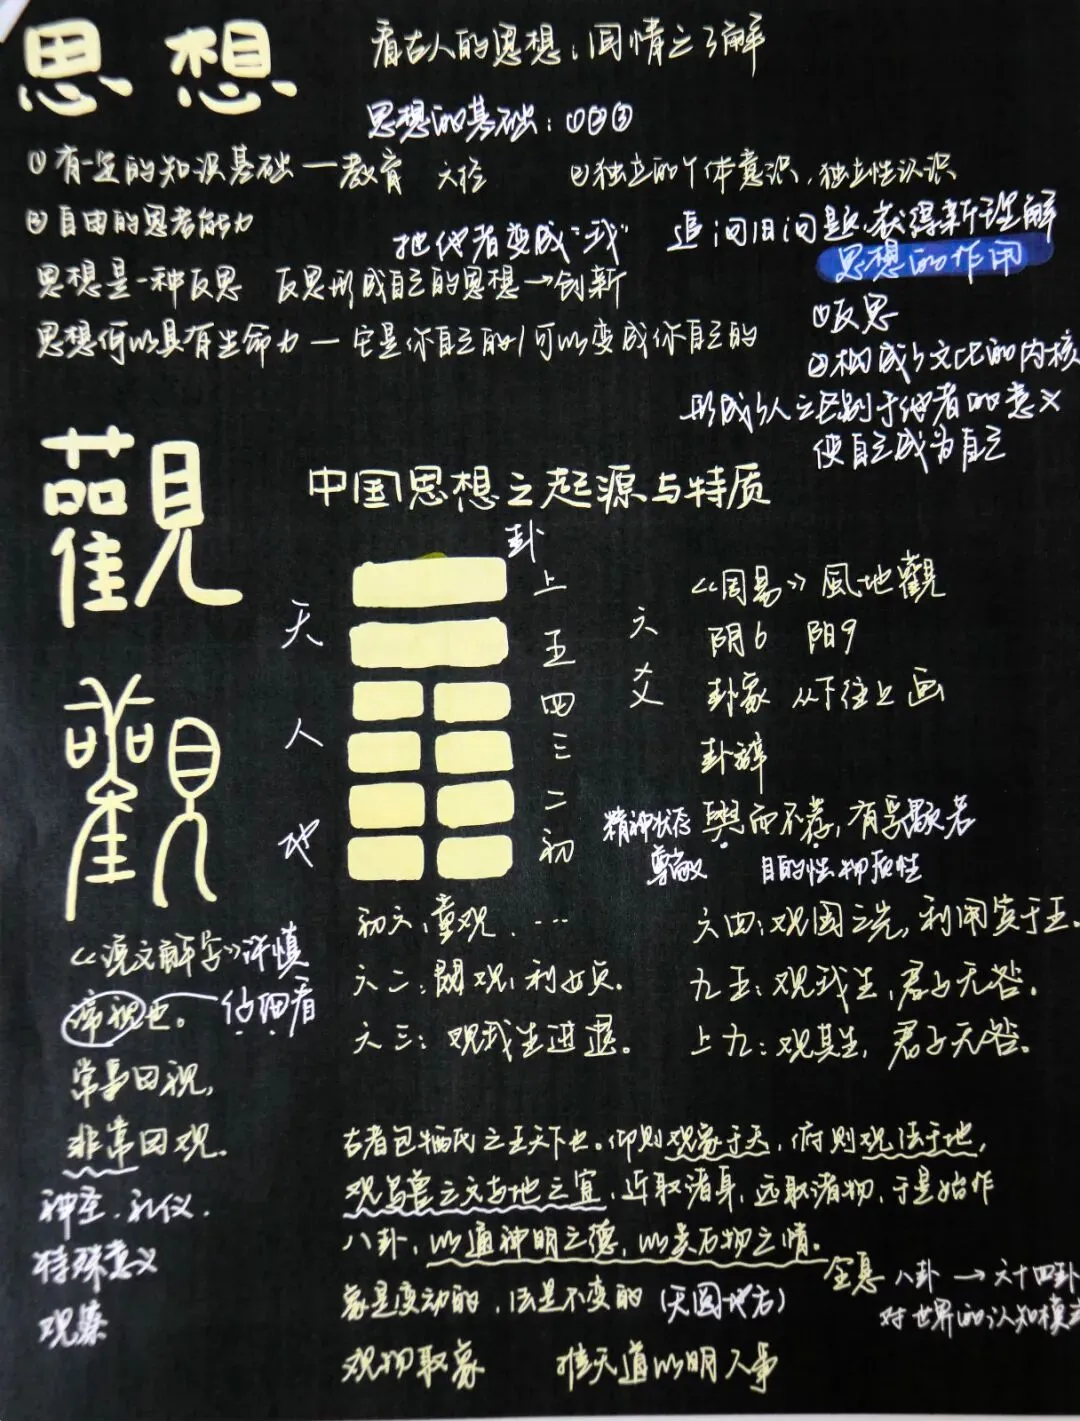 思想
看古人的思想:同情之了解
思想的基础:①②③
①有一定的知识基础—教育 文检
②独立的个体意识,独立性认识
③自由的思考能力
把他者变成“我”
追问旧问题,获得新理解
思想的作用
思想是一种反思 反思形成自己的思想→创新
①反思
思想何以具有生命力—它是你自己的/可以变成你自己的
②构成了文化的内核
形成了人之区别于他者的意义
使自己成为自己
觀
中国思想之起源与特质
卦
天
人
地
上
五
四
三
二
初
六爻
《周易》風地觀
阴6 阳9
卦象 从下往上画
卦辞
精神状态 盥而不荐,有孚颙若
尊敬 目的性 物质性
觀
初六:童观. …
六二:闚观,利女贞。
六三:观我生进退。
六四:观国之光,利用宾于王。
九五:观我生,君子无咎。
上九:观其生,君子无咎。
《说文解字》许慎
谛视也。 仔细看
常事曰视,
非常曰观.
神圣.礼仪.
特殊意义
观众
古者包牺氏之王天下也。仰则观象于天,俯则观法于地,
观鸟兽之文与地之宜,近取诸身,远取诸物,于是始作
八卦,以通神明之德,以类万物之情。
象是变动的,法是不变的(天圆地方)
全息 八卦→六十四卦
对世界的认知模式
观物取象 推天道以明人事